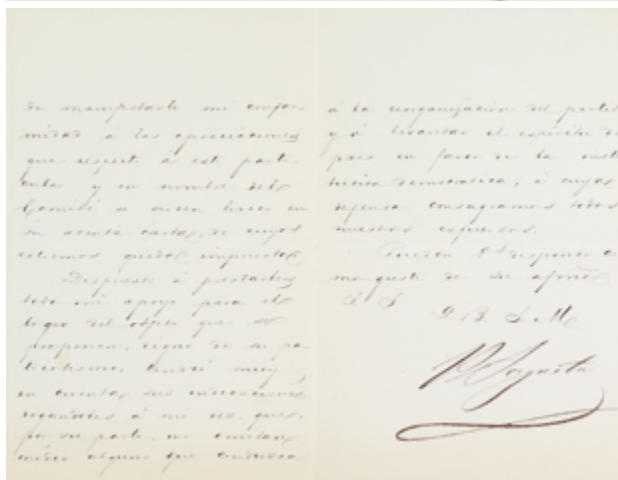 de manifestarle mi confor-
midad a las apreciaciones
que respecto á este parti-
cular y en nombre del
Comité se sirven hacer en
su atenta carta, de cuyos
estremos quedo impuesto.
Dispuesto á prestarles
todo mi apoyo para el
logro del objeto que se
proponen, digno de su pa-
triotismo, tendré muy
en cuenta sus indicaciones,
rogandoles á mi vez, que,
por su parte, no omitan
medio alguno que conduzca
á la reorganización del partido
y á levantar el espíritu del
pais en favor de la
democratica, á cuya
defensa consagramos todos
nuestros esfuerzos.
Pueden Vds disponer
de su afmo
S S
Q. B. S. M.
P. Sagasta